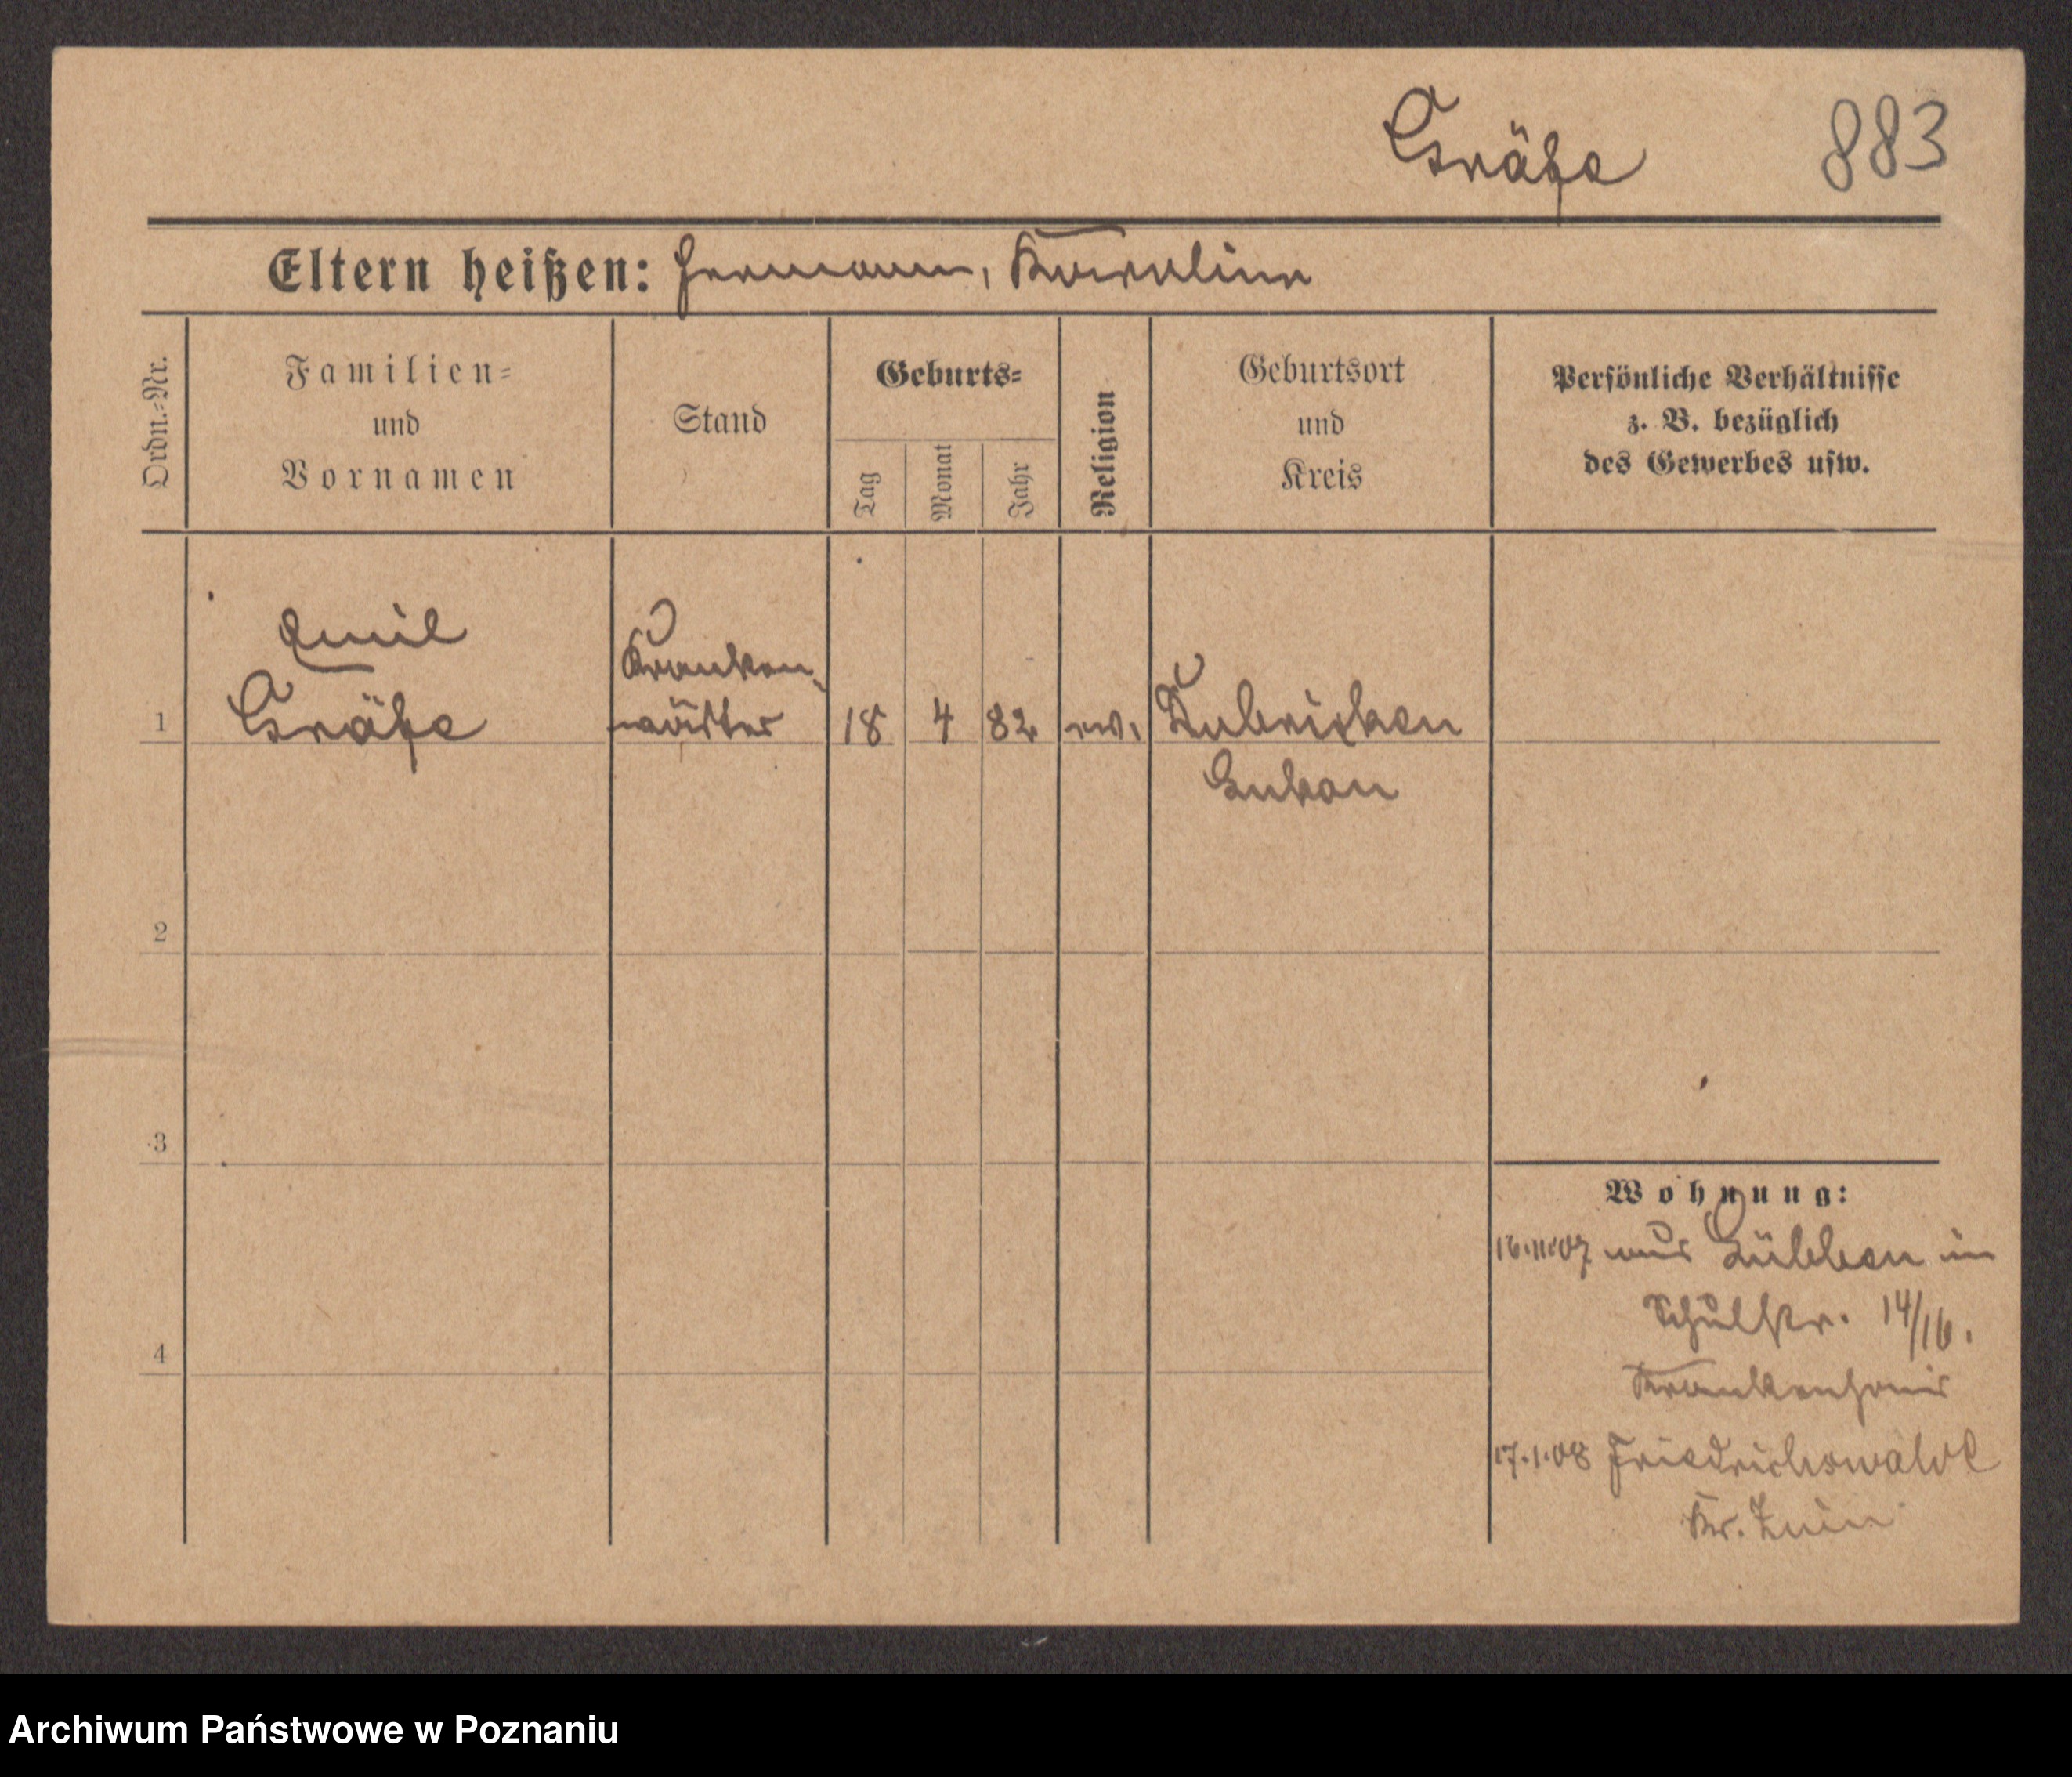 Gräfe 883
Eltern heißen: Hermann, Karoline
Ordn.-Nr.
Familien-
und
Vornamen
Stand
Geburts-
Tag
Monat
Jahr
Religion
Geburtsort
und
Kreis
Persönliche Verhältnisse
z. B. bezüglich
des Gewerbes usw.
Emil
Gräfe
Kranken-
wärter
1
18 4 82 ev.
Luckau
2
3
4
Wohnung:
16.11.07 aus Lübben in
Schulstr. 14/16.
Krankenhaus
17.1.08 Friedrichswalde
Kr. Znin
Archiwum Państwowe w Poznaniu